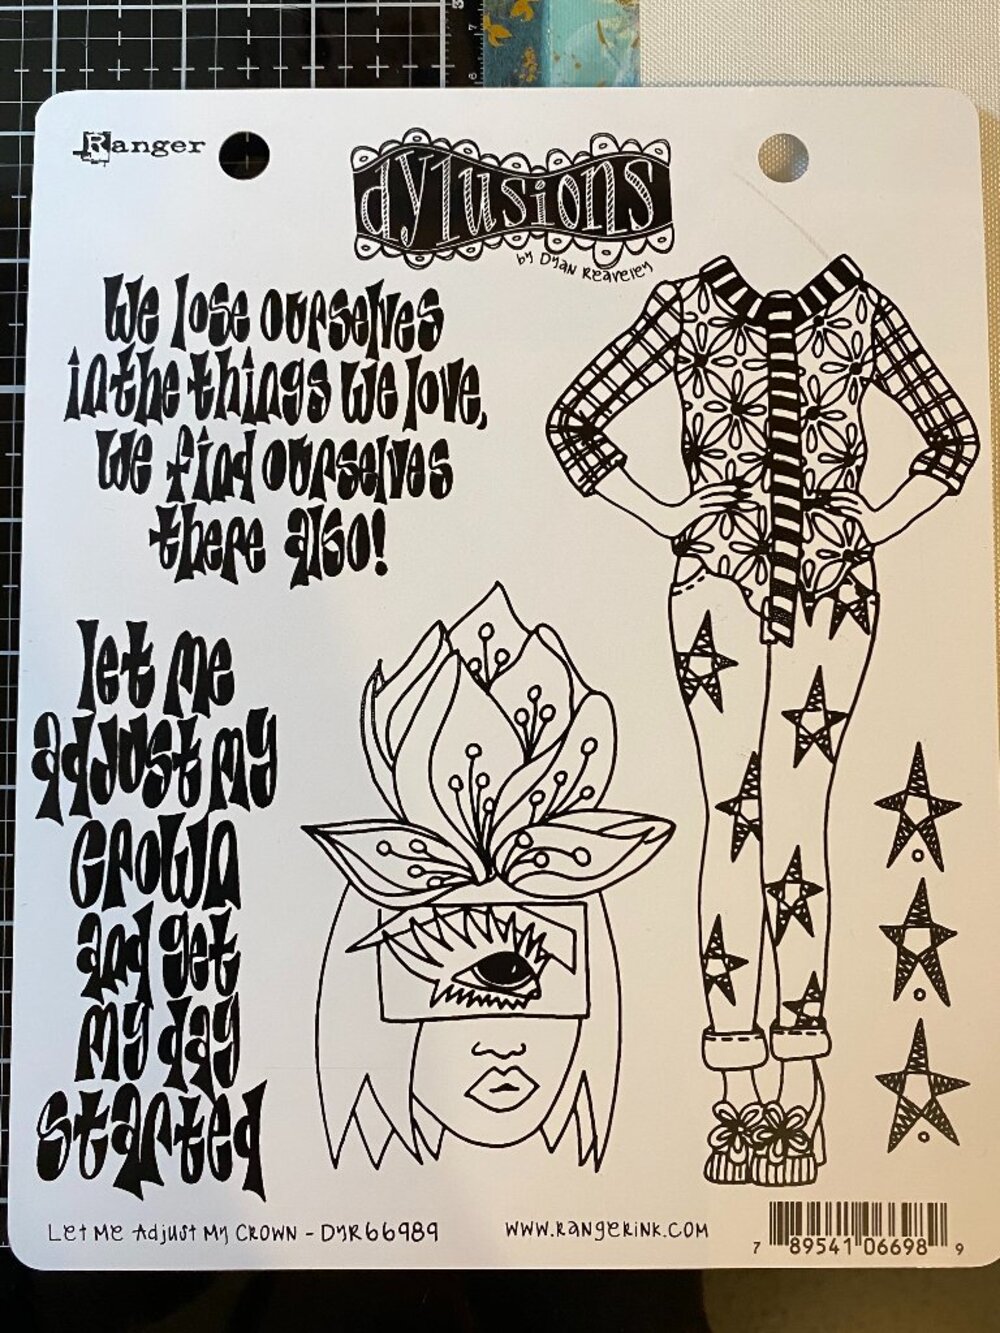 Ranger
dylusions
by Dyan Reaveley
We lose ourselves
in the things we love,
we find ourselves
there also!
let me
adjust my
crown
and get
my day
started
Let Me Adjust My Crown - DYR66989
www.rangerink.com
7 89541 06698 9